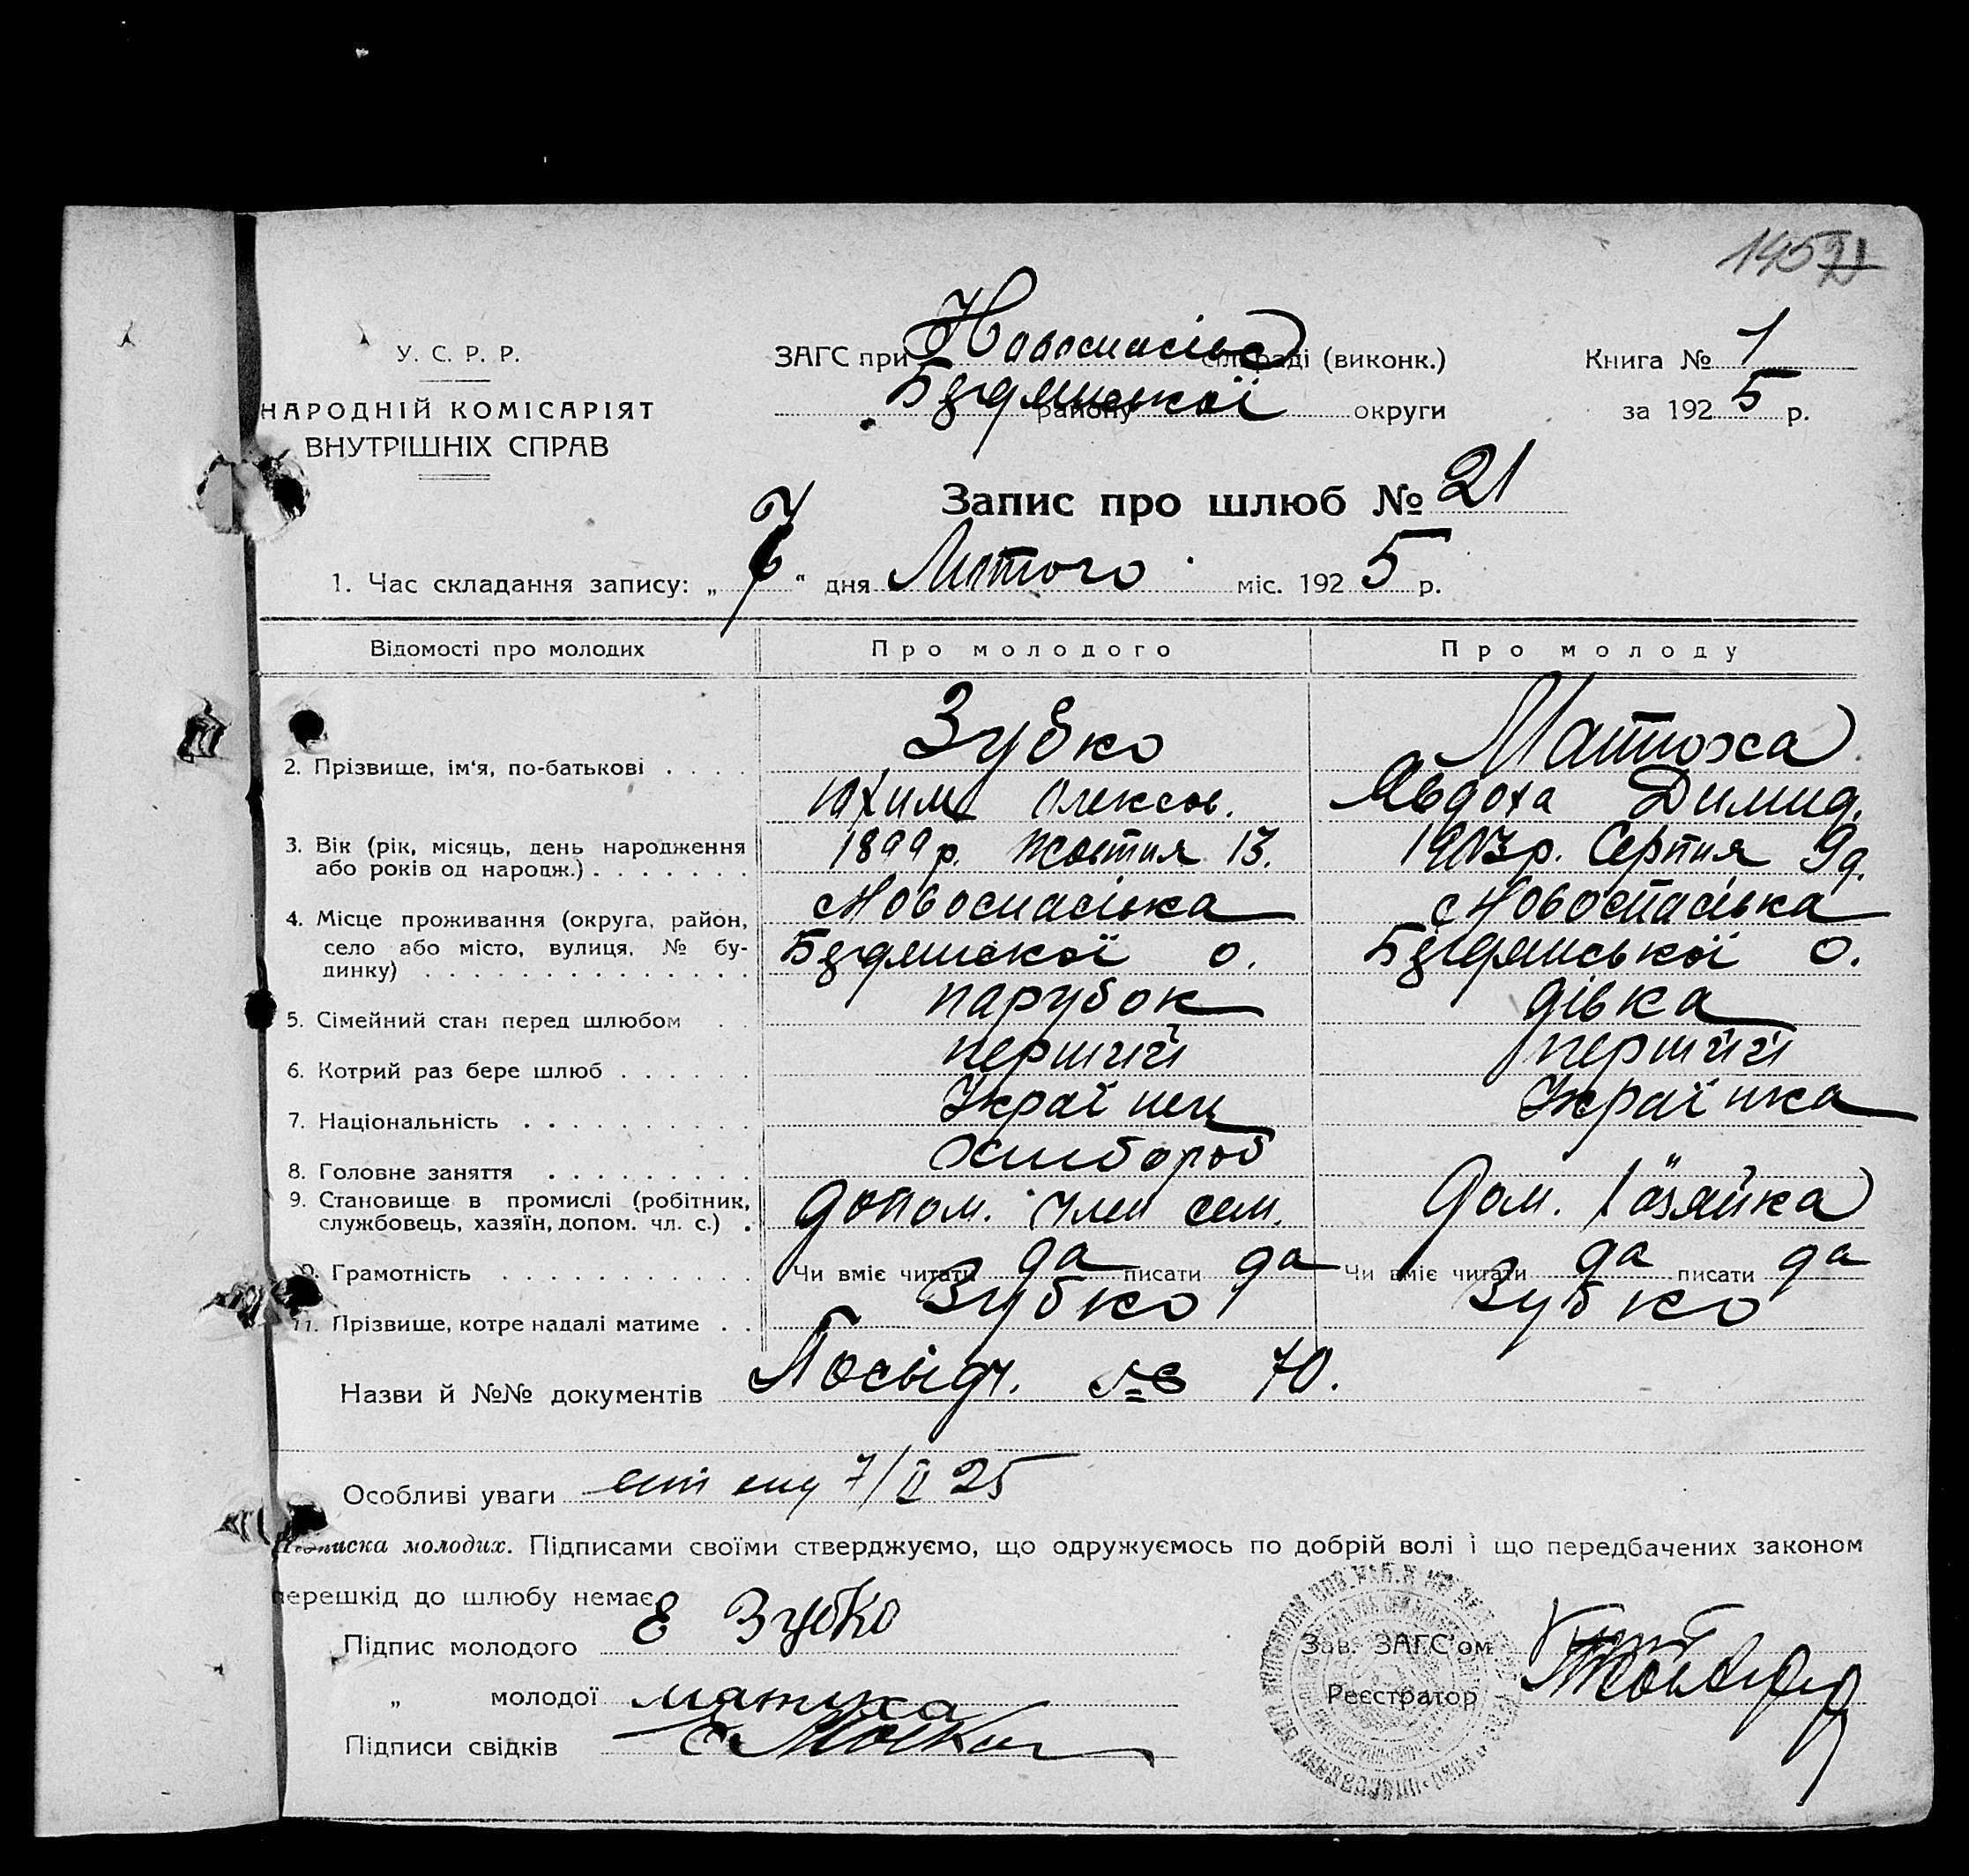 У. С. Р. Р.
НАРОДНІЙ КОМІСАРІЯТ
ВНУТРІШНІХ СПРАВ
ЗАГС при Новоспасівс сільраді (виконк.)
Бердянської району округи
Книга № 1
за 1925 р.
Запис про шлюб № 21
1. Час складання запису: „7“ дня Лютого міс. 1925 р.
Відомості про молодих Про молодого Про молоду
2. Прізвище, ім'я, по-батькові . . . . Зубко Матюха
Юхим Олексов. Явдоха Димид.
3. Вік (рік, місяць, день народження 1899 р. Жовтня 13. 1903 р. Серпня 9 д.
або років од народж.) . . . . . . .
4. Місце проживання (округа, район, Новоспасівка с Новоспасівка
село або місто, вулиця, № бу-
динку) . . . . . . . . . . . . . . Бердянської о. Бердянської о.
5. Сімейний стан перед шлюбом . . парубок дівка
6. Котрий раз бере шлюб . . . . . . перший перший
7. Національність . . . . . . . . . . Українец Українка
8. Головне заняття . . . . . . . . . Хлібороб
9. Становище в промислі (робітник, допом. член сем. дом. Хазяйка
службовець, хазяїн, допом. чл. с.) .
Грамотність . . . . . . . . . . . Чи вміє читати да писати да Чи вміє читати да писати да
11. Прізвище, котре надалі матиме . . Зубко Зубко
Назви й №№ документів Посвідч. № 70.
Особливі уваги 7/II 25
Підписка молодих. Підписами своїми стверджуємо, що одружуємось по добрій волі і що передбачених законом
перешкід до шлюбу немає.
Підпис молодого Е Зубко
„ молодої матюха
Підписи свідків
Зав. ЗАГС'ом
Реєстратор